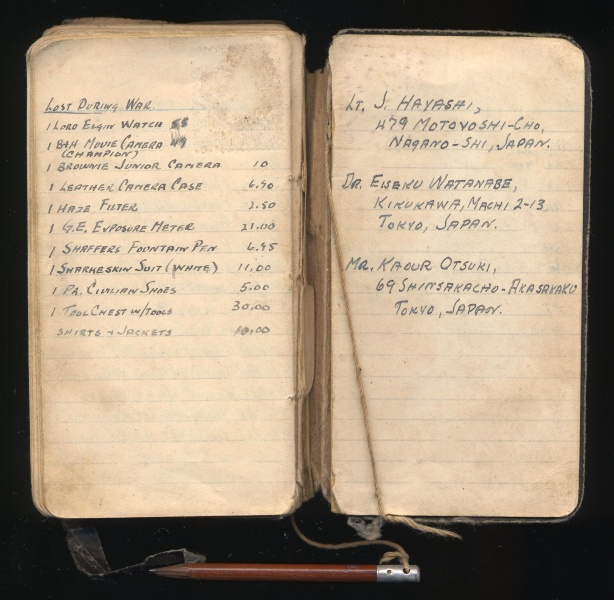 LOST DURING WAR
1 LORD ELGIN WATCH 55
1 B+H MOVIE CAMERA 49
(CHAMPION)
1 BROWNIE JUNIOR CAMERA 10
1 LEATHER CAMERA CASE 6.90
1 HAZE FILTER 2.50
1 G.E. EXPOSURE METER 21.00
1 SHAFFERS FOUNTAIN PEN 6.95
1 SHARKESKIN SUIT (WHITE) 11.00
1 PR. CIVILIAN SHOES 5.00
1 TOOL CHEST W/TOOLS 30.00
SHIRTS + JACKETS 10.00
LT. J. HAYASHI,
479 MOTOYOSHI-CHO,
NAGANO-SHI, JAPAN.
DR. EISEKU WATANABE,
KIKUKAWA, MACHI 2-13,
TOKYO, JAPAN.
MR. KAOUR OTSUKI,
69 SHINSAKACHO-AKASAKAKU
TOKYO, JAPAN.